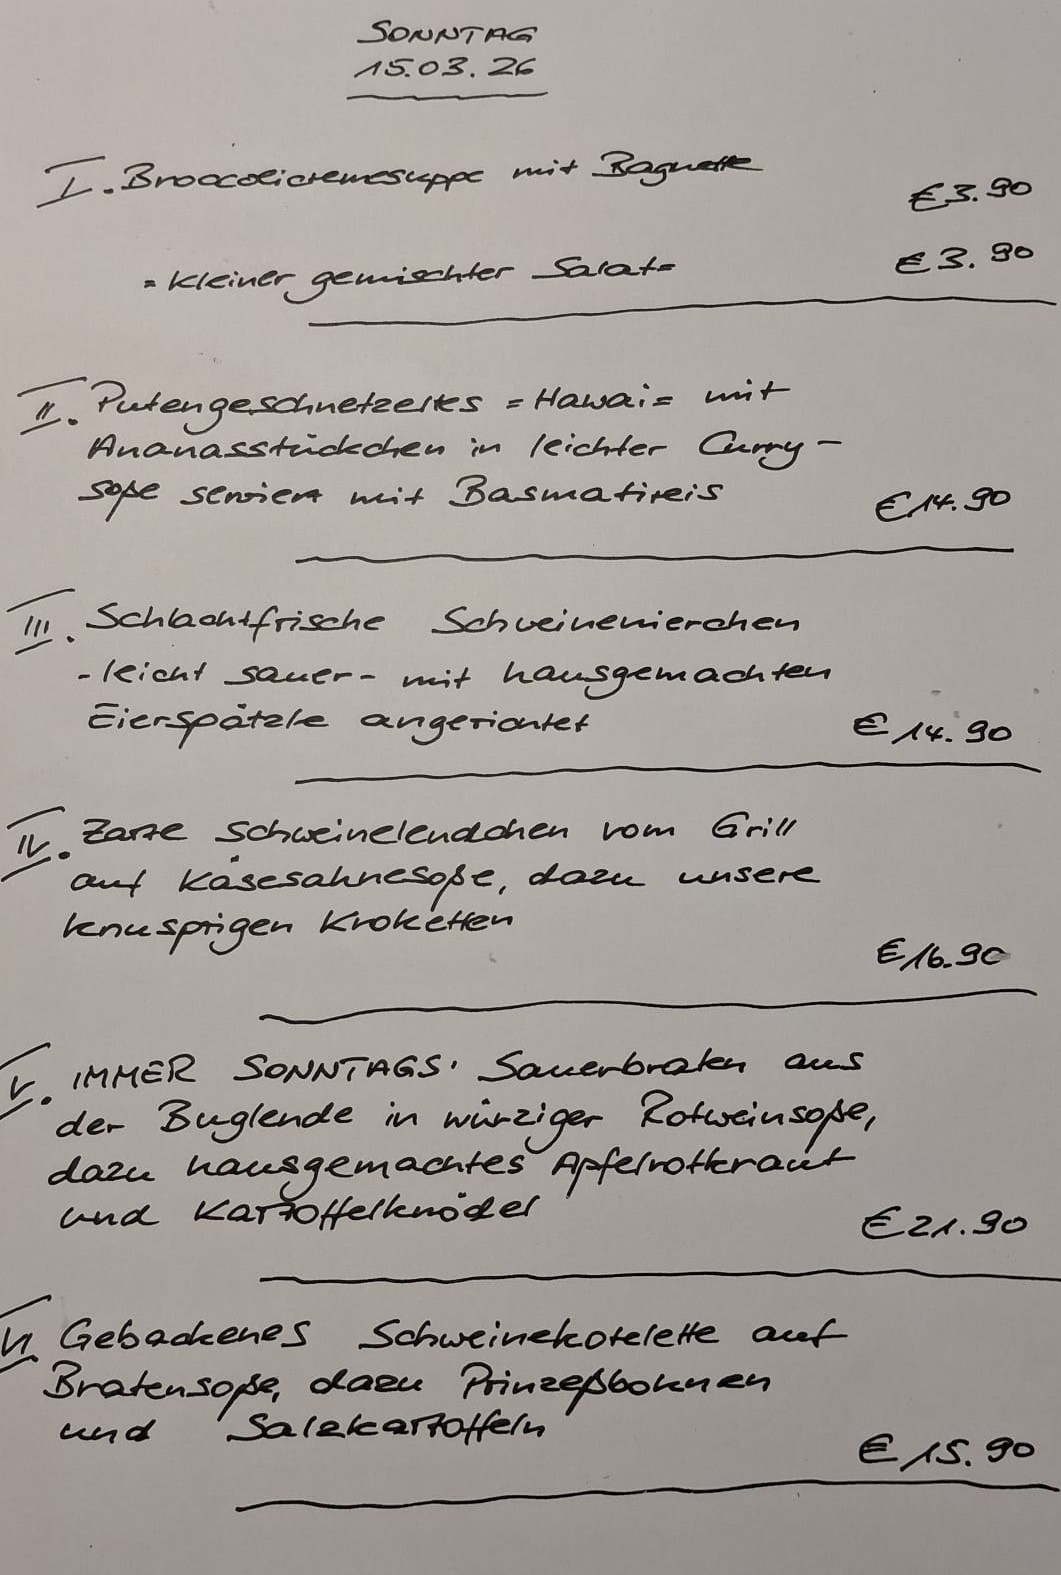 SONNTAG
15.03.26
I. Broccolicremesuppe mit Baguette
€3.90
=kleiner gemischter Salat= €3.90
II. Putengeschnetzeltes =Hawai= mit
Ananasstückchen in leichter Curry-
soße serviert mit Basmatireis €14.90
III. Schlachtfrische Schweinenierchen
-leicht sauer- mit hausgemachten
Eierspätzle angerichtet €14.90
IV. Zarte Schweinelendchen vom Grill
auf Käsesahnesoße, dazu unsere
knusprigen Kroketten
€16.90
V. IMMER SONNTAGS' Sauerbraten aus
der Buglende in würziger Rotweinsoße,
dazu hausgemachtes Apfelrotkraut
und Kartoffelknödel €21.90
VI. Gebackenes Schweinekotelette auf
Bratensoße, dazu Prinzeßbohnen
und Salzkartoffeln
€15.90